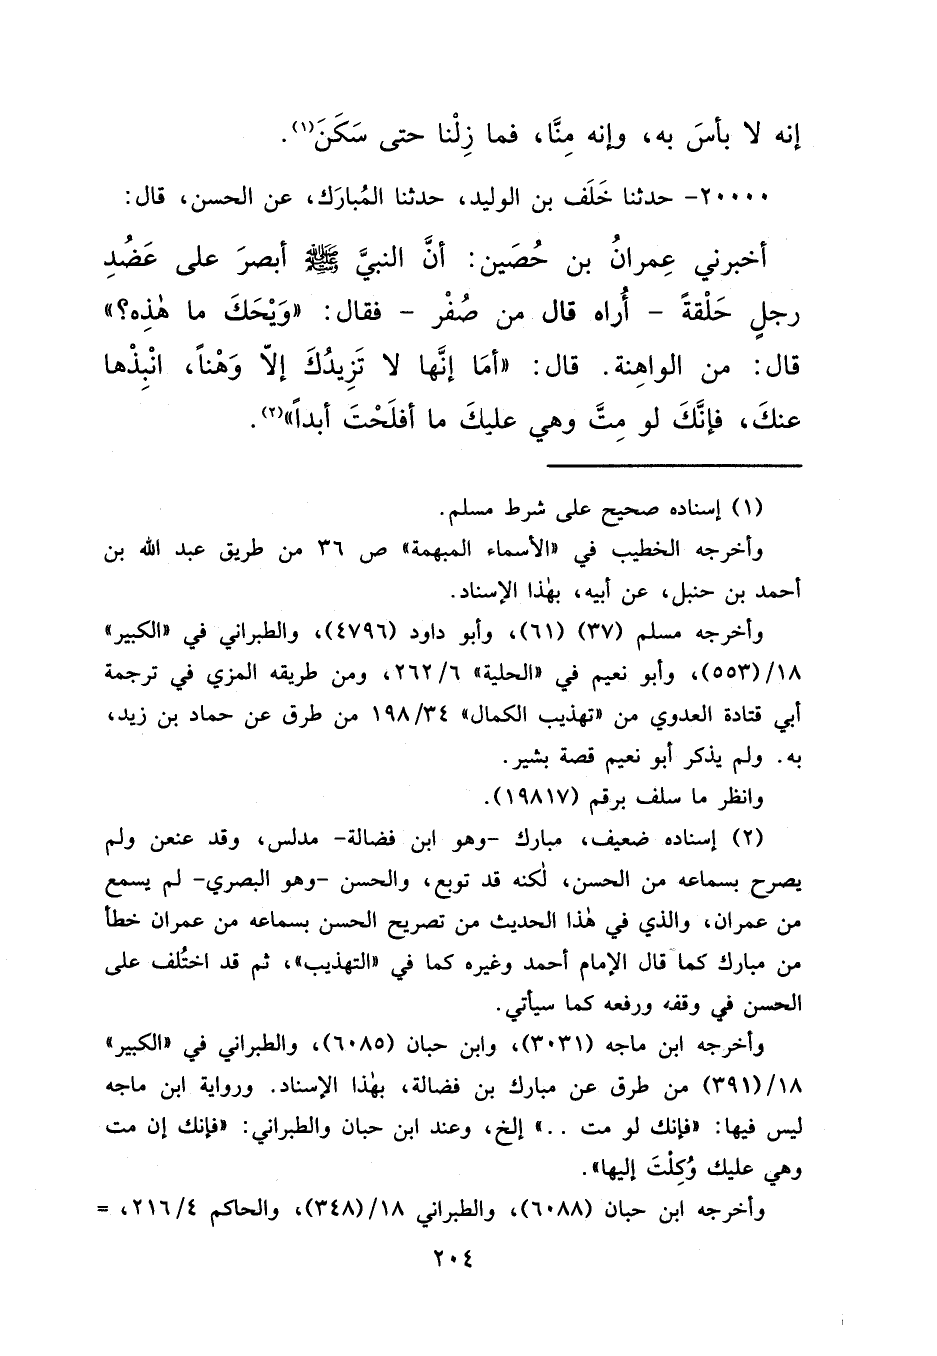 إنه لا بأسَ به، وإنه مِنَّا، فما زِلْنا حتى سَكَنَ(١).
٢٠٠٠٠- حدثنا خَلَف بن الوليد، حدثنا المُبارَك، عن الحسن، قال:
أخبرني عِمرانُ بن حُصَين: أنَّ النبيَّ ﷺ أبصرَ على عَضُدِ
رجلٍ حَلْقةً - أُراه قال من صُفْر - فقال: «وَيْحَكَ ما هٰذِه؟»
قال: من الواهِنة. قال: «أمَا إنَّها لا تَزِيدُكَ إلاّ وَهْناً، انْبِذْها
عنكَ، فإنَّكَ لو مِتَّ وهي عليكَ ما أفلَحْتَ أبداً»(٢).
(١) إسناده صحيح على شرط مسلم.
وأخرجه الخطيب في «الأسماء المبهمة» ص ٣٦ من طريق عبد الله بن
أحمد بن حنبل، عن أبيه، بهٰذا الإسناد.
وأخرجه مسلم (٣٧) (٦١)، وأبو داود (٤٧٩٦)، والطبراني في «الكبير»
١٨/(٥٥٣)، وأبو نعيم في «الحلية» ٢٦٢/٦، ومن طريقه المزي في ترجمة
أبي قتادة العدوي من «تهذيب الكمال» ١٩٨/٣٤ من طرق عن حماد بن زيد،
به. ولم يذكر أبو نعيم قصة بشير.
وانظر ما سلف برقم (١٩٨١٧).
(٢) إسناده ضعيف، مبارك -وهو ابن فضالة- مدلس، وقد عنعن ولم
يصرح بسماعه من الحسن، لٰكنه قد توبع، والحسن -وهو البصري- لم يسمع
من عمران، والذي في هٰذا الحديث من تصريح الحسن بسماعه من عمران خطأ
من مبارك كما قال الإمام أحمد وغيره كما في «التهذيب»، ثم قد اختُلف على
الحسن في وقفه ورفعه كما سيأتي.
وأخرجه ابن ماجه (٣٠٣١)، وابن حبان (٦٠٨٥)، والطبراني في «الكبير»
١٨/(٣٩١) من طرق عن مبارك بن فضالة، بهٰذا الإسناد. ورواية ابن ماجه
ليس فيها: «فإنك لو مت ..» إلخ، وعند ابن حبان والطبراني: «فإنك إن مت
وهي عليك وُكِلْتَ إليها».
وأخرجه ابن حبان (٦٠٨٨)، والطبراني ١٨/(٣٤٨)، والحاكم ٢١٦/٤، =
٢٠٤